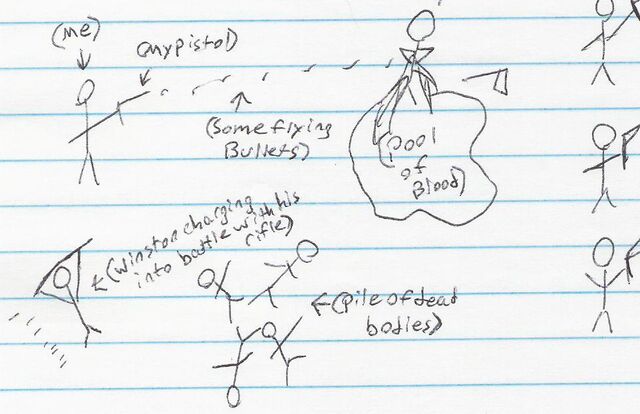 (me)
(my pistol)
(some flying
Bullets)
(pool
of
Blood)
(winston charging
into battle with his
rifle)
(pile of dead
bodies)